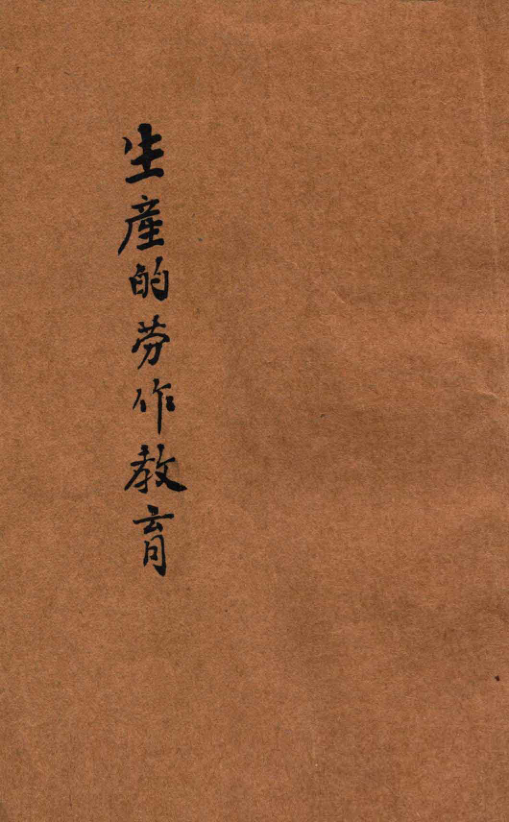 生產的劳作教育